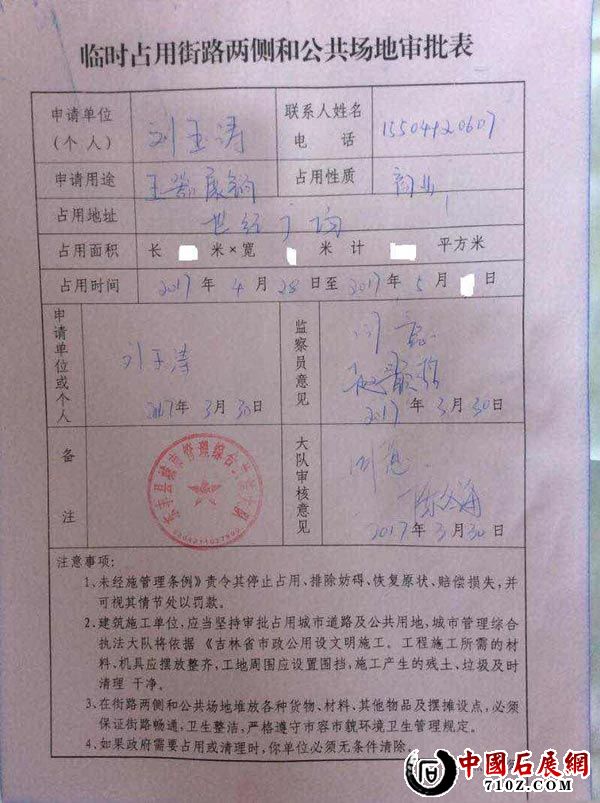 临时占用街路两侧和公共场地审批表
申请单位
(个人)
刘玉涛
联系人姓名
电 话
13504420607
申请用途
玉器展销
占用性质
商业
占用地址
世纪广场
占用面积
长 米×宽 米 计 平方米
占用时间
2017 年 4 月 28 日至 2017 年 5 月 日
申请单位或个人
刘玉涛
2017年 3月 30日
监察员意见
同意
2017年 3月 30日
备
注
大队审核意见
同意
2017年 3月 30日
注意事项:
1、未经施管理条例》责令其停止占用、排除妨碍、恢复原状、赔偿损失,并
可视其情节处以罚款。
2、建筑施工单位,应当坚持审批占用城市道路及公共用地,城市管理综合
执法大队将依据《吉林省市政公用设文明施工。工程施工所需的材
料,机具应摆放整齐,工地周围应设置围挡,施工产生的残土、垃圾及时
清理 干净。
3、在街路两侧和公共场地堆放各种货物、材料、其他物品及摆摊设点,必须
保证街路畅通,卫生整洁,严格遵守市容市貌环境卫生管理规定。
4、如果政府需要占用或清理时,你单位必须无条件清除。
中國石展網
7102.COM